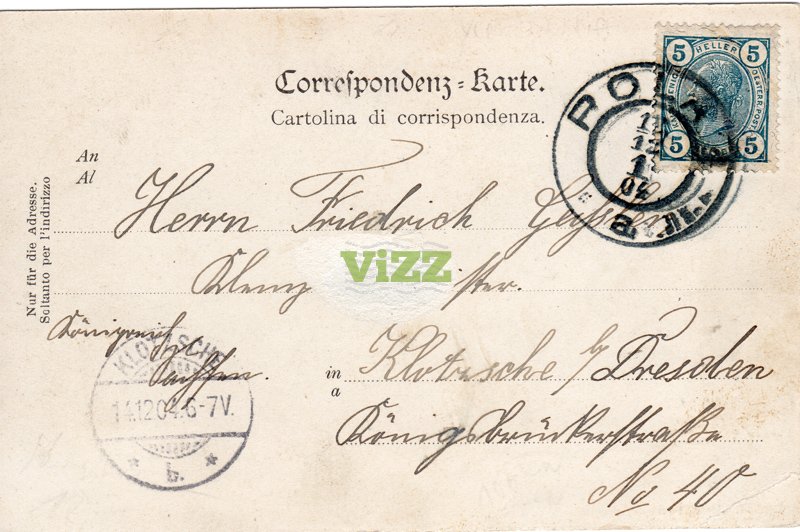 Correspondenz-Karte.
Cartolina di corrispondenza.
5 HELLER 5
5 5
POLA
12
04
An
Al
Nur für die Adresse.
Soltanto per l'indirizzo
Herrn Friedrich
ViZZ
Königreich
Sachsen.
KLOTZSCHE
14.12.04.6-7V.
* b. *
in
a
Klotzsche b/ Dresden
Königsbrückerstraße
No 40